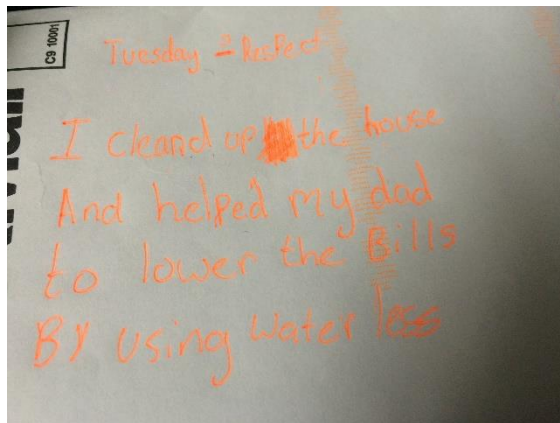 C9 10001
Tuesday - Respect
I cleand up the house
And helped my dad
to lower the Bills
By using water less